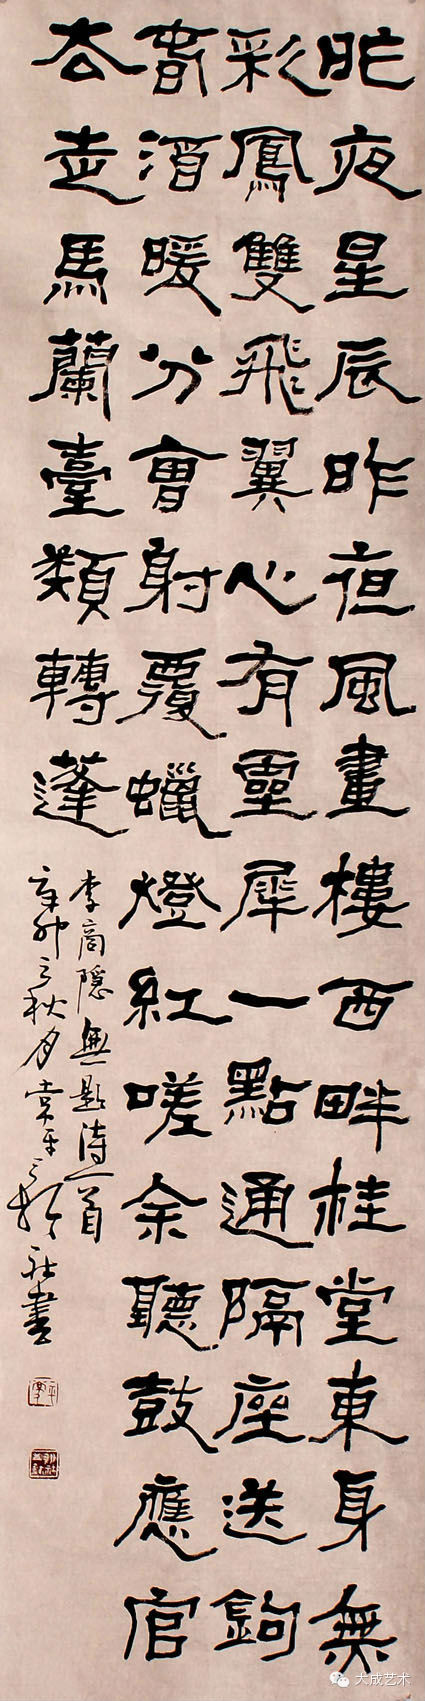 昨夜星辰昨夜風畫樓西畔桂堂東身無
彩鳳雙飛翼心有靈犀一點通隔座送鉤
春酒暖分曹射覆蠟燈紅嗟余聽鼓應官
去走馬蘭臺類轉蓬
李商隱無題詩一首
辛卯之秋月書
大成艺术